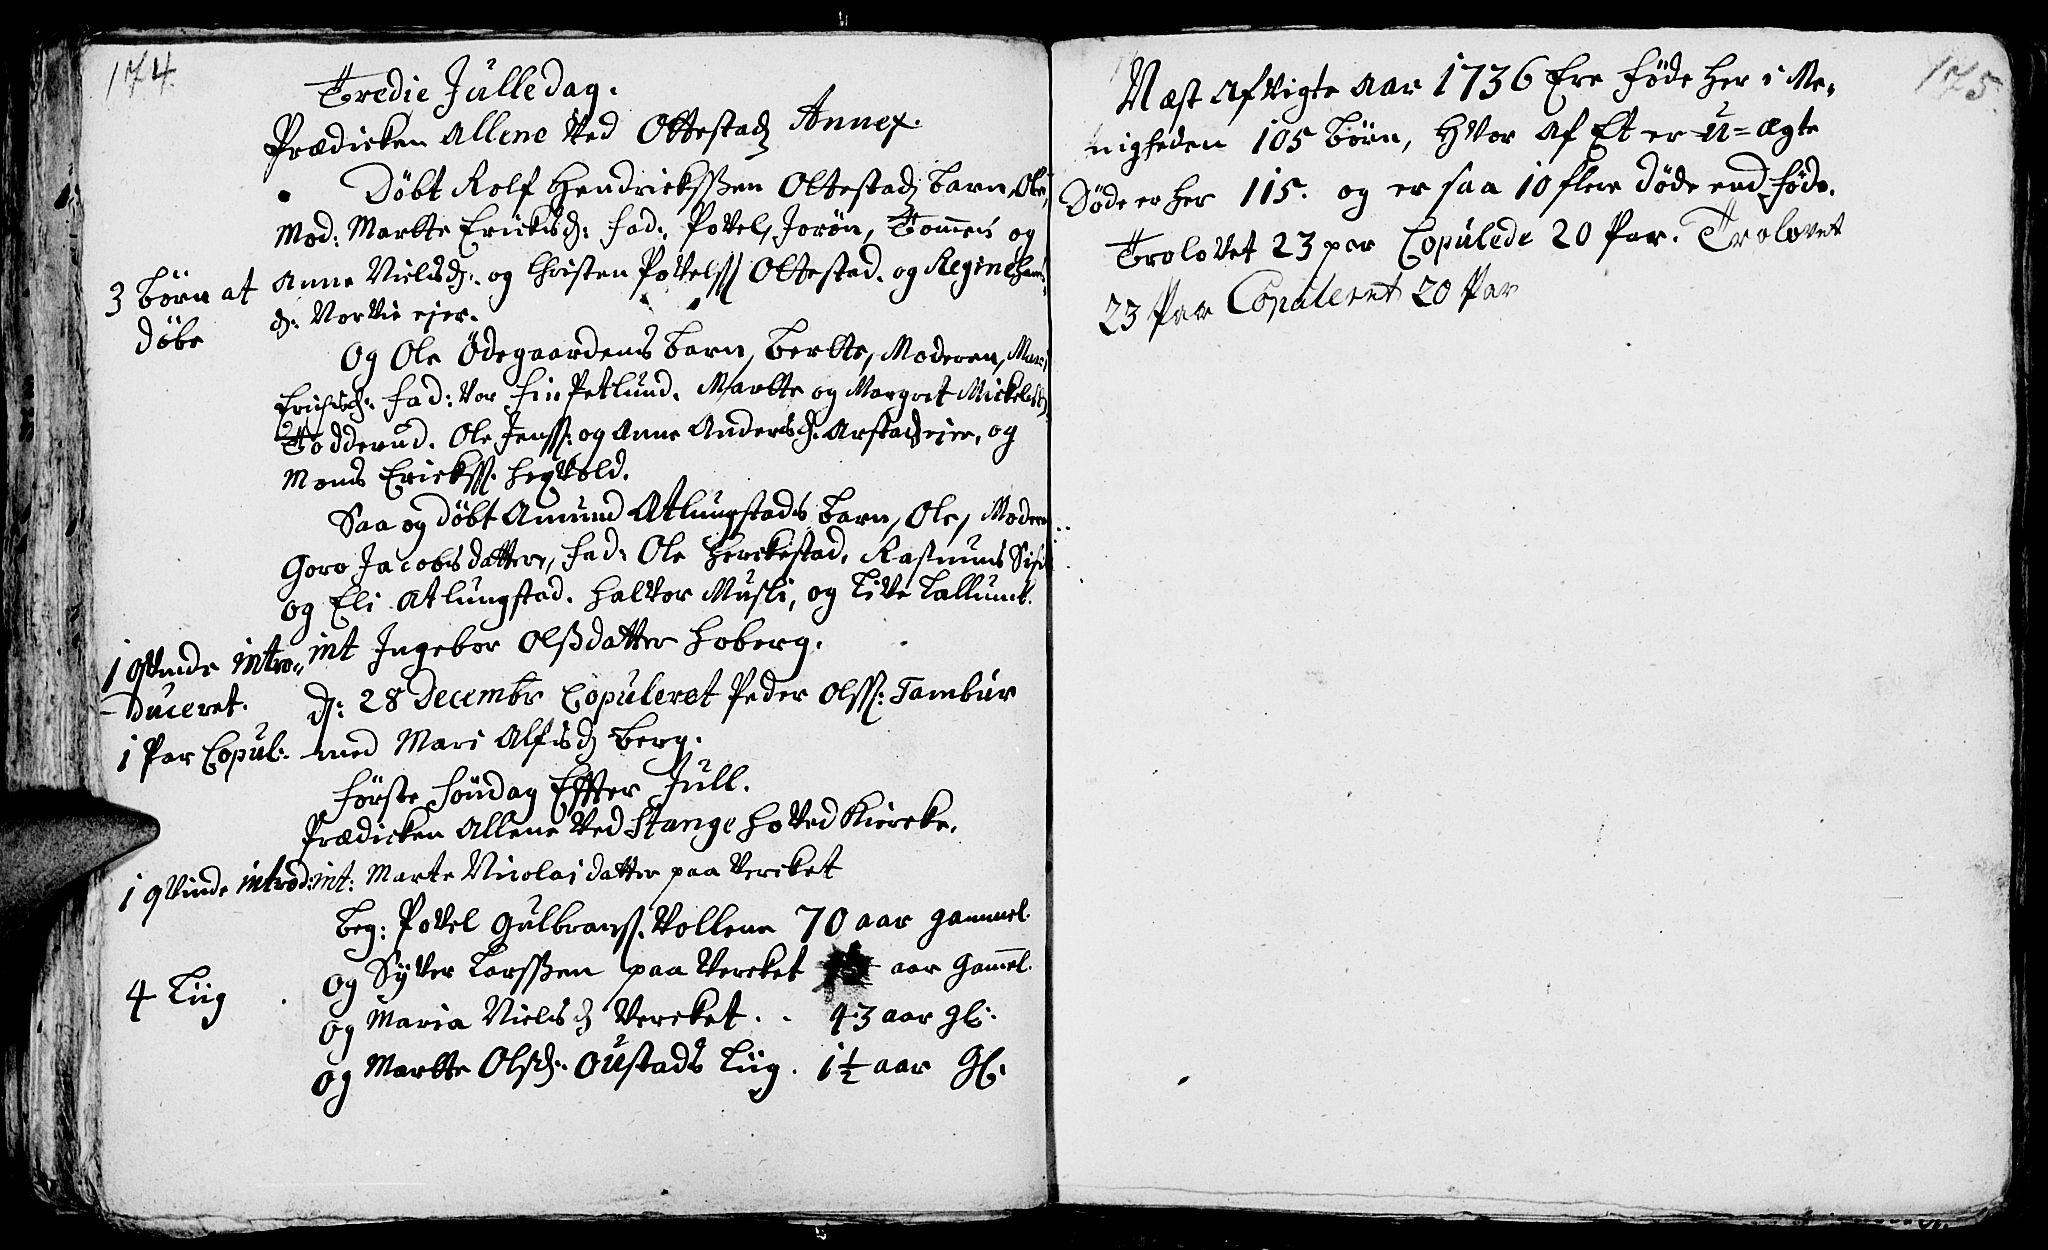 174.
Tredie Julledag.
Prædicken allene Ved Ottestad Annex.
Døbt Rolf Hendrickssen Ottestad barn, Ole,
Mod: Marthe Ericksd: fad: Povel, Jorøn, Tommes og
3 børn at
døbe
Anne Nielsd: og Christen Povelss Ottestad. og Regine
d: Norvie ejer.
Og Ole Ødegaardens barn, Berthe, Moderen, Mari,
Erichsd: fad: Vor Petlund. Marthe og Margret Mickelsd
Todderud. Ole Jenss: og Anne Andersd: Arstad ejer, og
Mons Erickss.
Saa og døbt Amund Atlungstads barn, Ole, Moderen
Goro Jacobsdatter, fad: Ole Herckestad, Rasmus
og Eli Atlungstad. Halvor Musli, og Live Lallum
1 qvinde intro-
duceret.
int Ingebor Olsdatter Hoberg.
1 Par Copul:
d: 28 Decembr Copuleret Peder Olss: Tambur
med Mari Alfsd Berg.
Første Søndag Effter Jull.
Prædicken allene Ved Stange Hoved Kiercke.
1 qvinde introd:
int: Marte Nicolaidatter paa Vercket
4 Liig
beg: Povel Gulbranss. Vollene 70 aar gammel.
og Syver Larssen paa Vercket aar gamel.
og Maria Nielsd Vercket . . 43 aar gl:
og Marthe Olsd: Oustads Liig . 1½ aar gl:
175.
Næst afvigte aar 1736 Ere føde her i Me-
nigheden 105 børn, Hvor af Et er u=ægte
Døde er her 115. og er saa 10 fleer døde end føde.
Trolovet 23 par Copulede 20 Par. Trolovet
23 Par Copuleret 20 Par